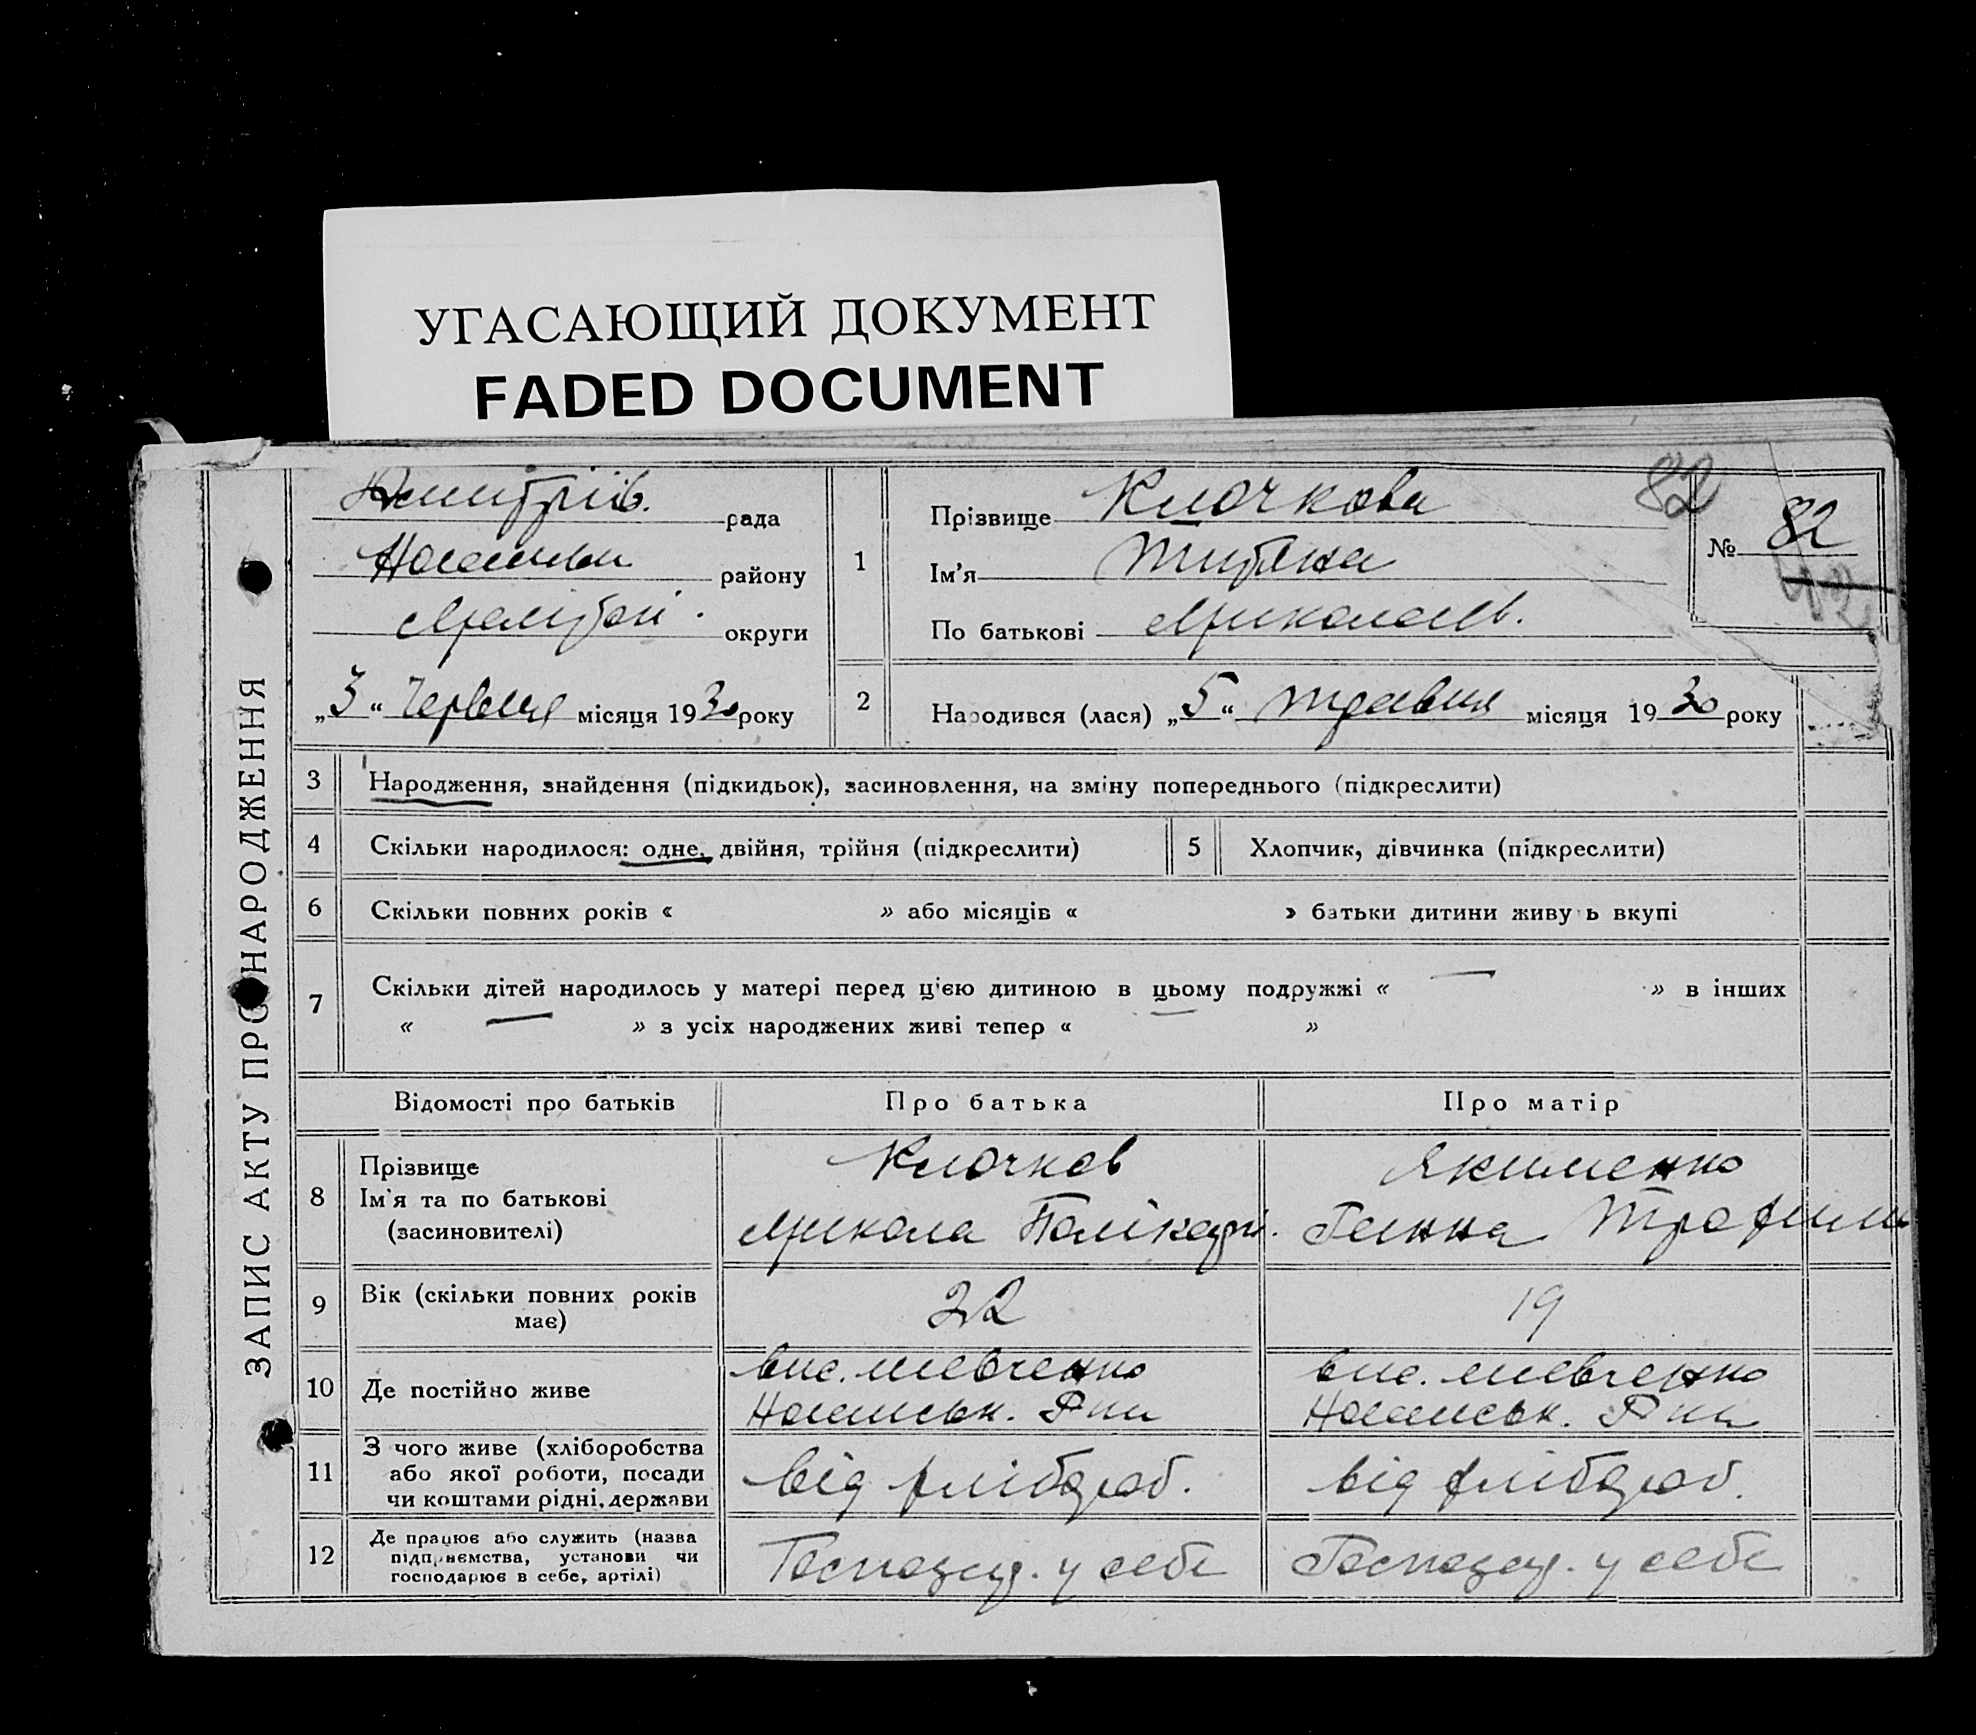 УГАСАЮЩИЙ ДОКУМЕНТ
FADED DOCUMENT
ЗАПИС АКТУ ПРО НАРОДЖЕННЯ
Дмитріїв. рада
району
Мелітоп. округи
„3“ Червня місяця 1930 року
1
Прізвище Клочкова
Ім’я Титяна
По батькові Миколаєв.
82
№ 82
2
Народився (лася) „5“ травня місяця 1930 року
3 Народження, знайдення (підкидьок), засиновлення, на зміну попереднього (підкреслити)
4 Скільки народилося: одне, двійня, трійня (підкреслити)
5 Хлопчик, дівчинка (підкреслити)
6 Скільки повних років « » або місяців « » батьки дитини живуть вкупі
7 Скільки дітей народилось у матері перед цією дитиною в цьому подружжі « — » в інших
« — » з усіх народжених живі тепер « »
Відомості про батьків Про батька Про матір
8
Прізвище
Ім’я та по батькові
(засиновителі)
Клочков
Микола Полікарп.
Якименко
Ганна Трофим
9
Вік (скільки повних років
має)
22
19
10 Де постійно живе
вис. Шевченко
Р-ну
вис. Шевченко
Р-ну
11
З чого живе (хліборобства
або якої роботи, посади
чи коштами рідні, держави
від хлібороб.
від хлібороб.
12
Де працює або служить (назва
підприємства, установи чи
господарює в себе, артілі)
Господар. у себе
Господар. у себе